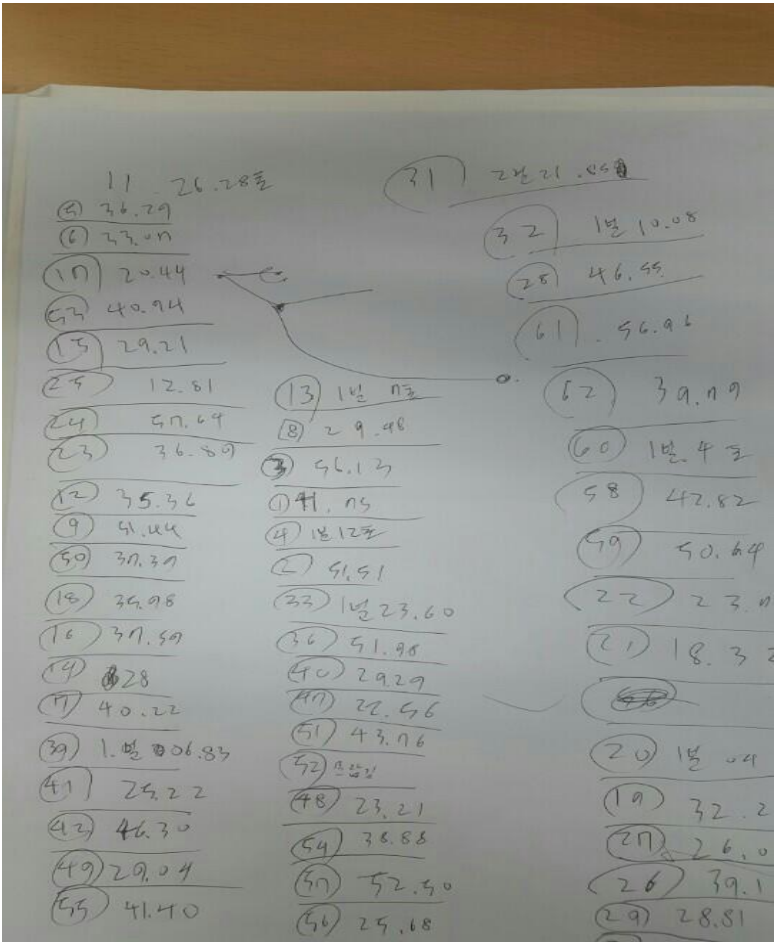 11 26.28초
⑤ 36.29
⑥ 33.07
⑰ 20.44
㊼ 40.94
⑮ 29.21
㉕ 12.81
㉔ 57.64
㉓ 36.89
⑫ 35.36
⑨ 51.44
㊿ 37.37
⑱ 35.98
⑯ 37.59
⑭ 28
⑦ 40.22
㊴ 1.분 06.83
㊶ 25.22
㊷ 46.30
㊾ 29.04
(55) 41.40
⑬ 1분 7초
⑧ 29.98
③ 56.13
④ 1분12초
② 51.51
㉝ 1분 23.60
㊱ 51.98
㊵ 29.29
㊼ 22.56
(51) 43.76
(52)
㊽ 23.21
(54) 38.88
(57) 52.50
(56) 25.68
㉛
㉜ 1분 10.08
㉘ 46.55
(61) 56.96
(62) 39.79
(60) 1분.4초
(58) 42.82
(59) 50.64
㉒ 23.7
㉑ 18.32
⑳ 1분 04
⑲ 32.2
㉗ 26.0
㉖ 39.1
㉙ 28.81